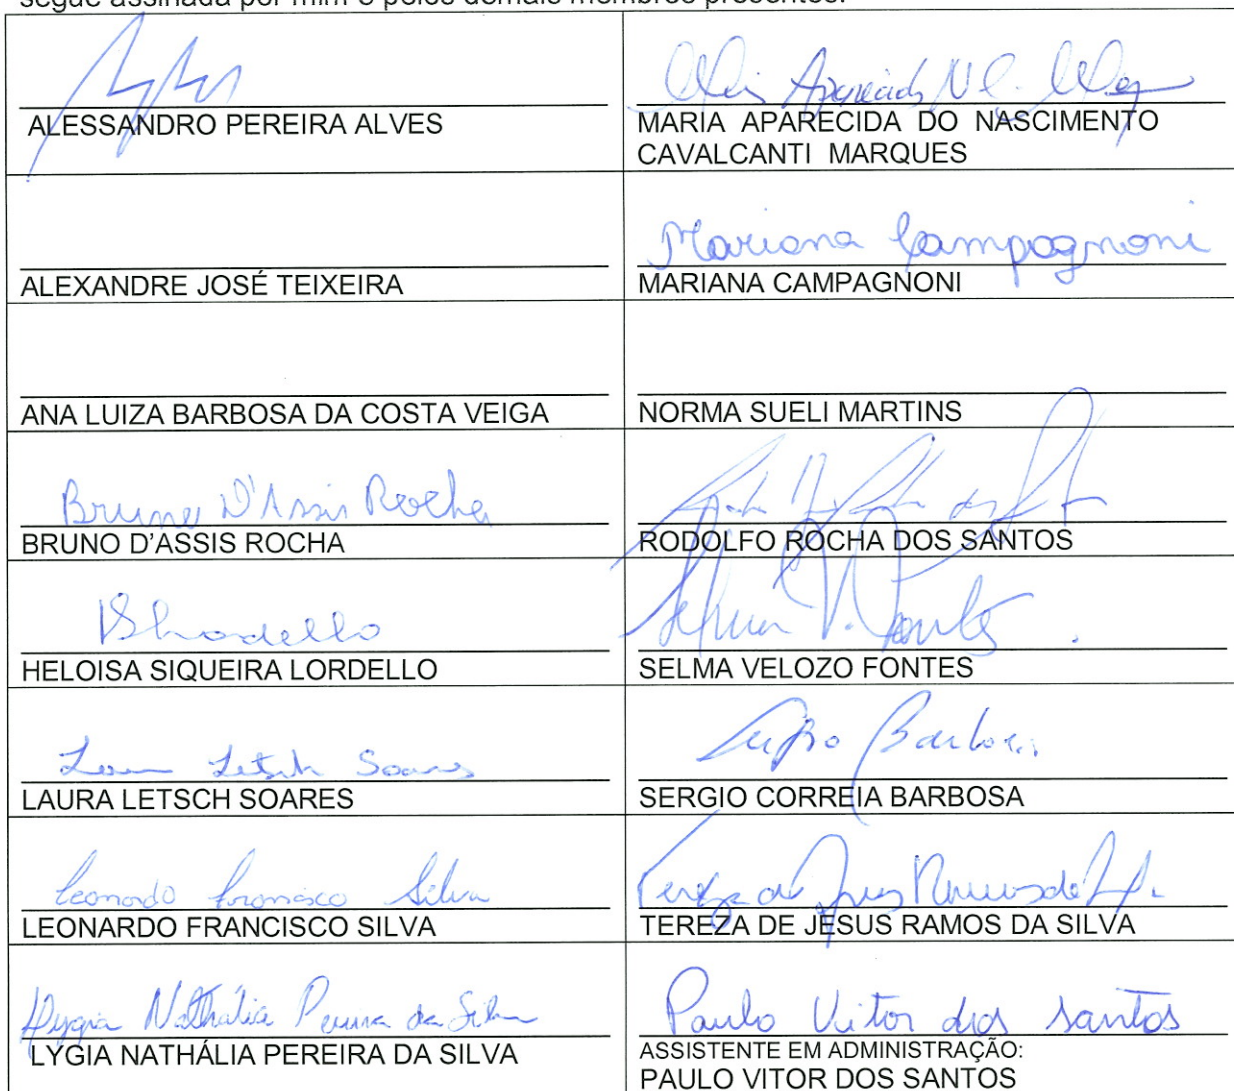 segue assinada por mim e pelos demais membros presentes.
ALESSANDRO PEREIRA ALVES
Aparecida
MARIA APARECIDA DO NASCIMENTO
CAVALCANTI MARQUES
ALEXANDRE JOSÉ TEIXEIRA
Mariana Campagnoni
MARIANA CAMPAGNONI
ANA LUIZA BARBOSA DA COSTA VEIGA
NORMA SUELI MARTINS
Bruno D'Assis Rocha
BRUNO D'ASSIS ROCHA
RODOLFO ROCHA DOS SANTOS
HELOISA SIQUEIRA LORDELLO
Selma V. Fontes
SELMA VELOZO FONTES
Laura Letsch Soares
LAURA LETSCH SOARES
Sergio Barbosa
SERGIO CORREIA BARBOSA
Leonardo Francisco Silva
LEONARDO FRANCISCO SILVA
Tereza de Jesus Ramos da
TEREZA DE JESUS RAMOS DA SILVA
Lygia Nathália Pereira da Silva
LYGIA NATHÁLIA PEREIRA DA SILVA
Paulo Vitor dos Santos
ASSISTENTE EM ADMINISTRAÇÃO:
PAULO VITOR DOS SANTOS